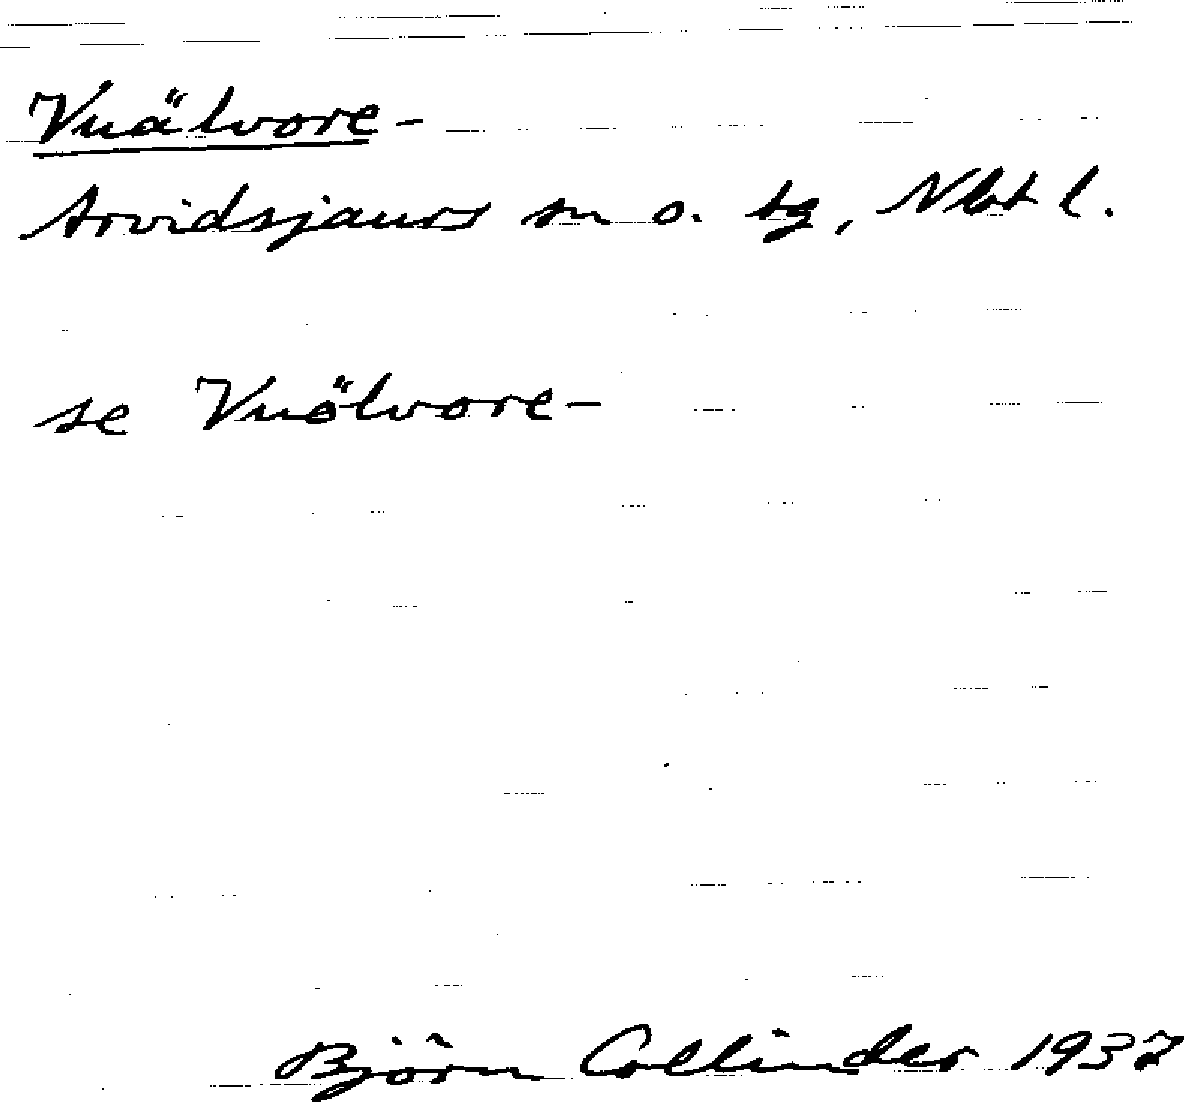 Vuälvore-
Arvidsjaurs sn o. tg, Nbt l.
se Vuölvore-
Björn Collinder 1937